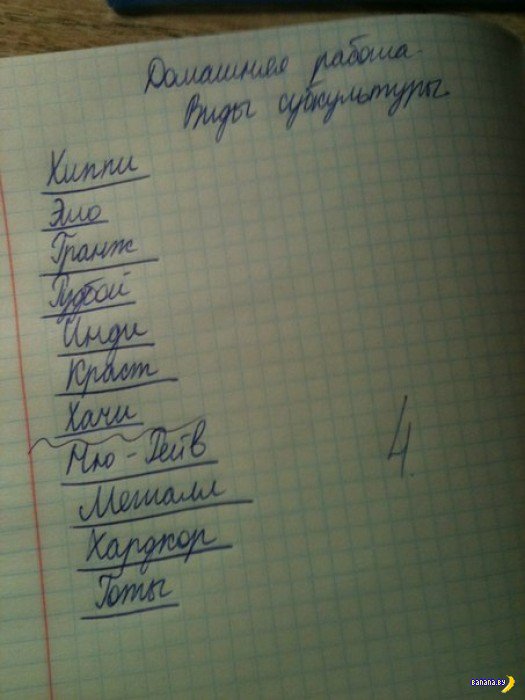 Домашняя работа.
Виды субкультуры.
Хиппи
Эмо
Гранж
Рудбой
Инди
Краст
Хачи
Ню-Рейв
Металл
Хардкор
Готы
4
banana.by